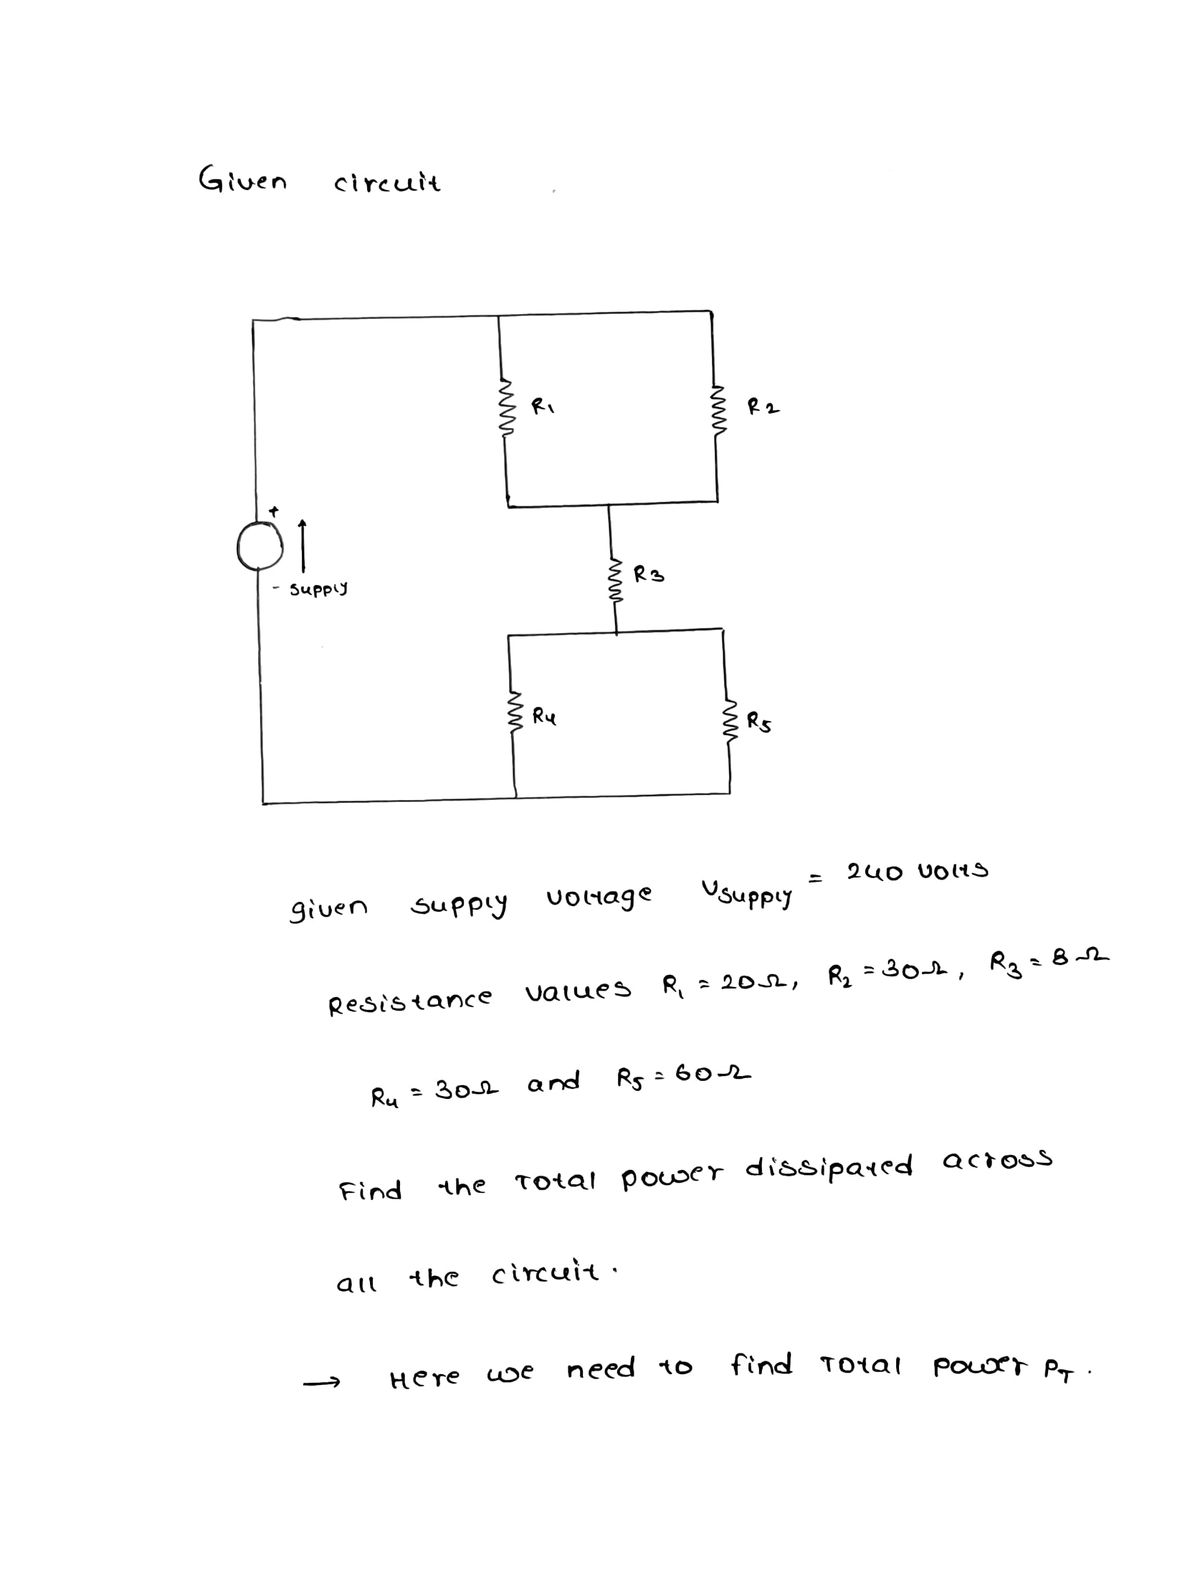 Given circuit
R1
R2
+
- supply
R3
R4
R5
given supply voltage Vsupply = 240 volts
Resistance values R1 = 20Ω, R2 = 30Ω, R3 = 8Ω
R4 = 30Ω and R5 = 60Ω
Find the Total power dissipated across
all the circuit.
→ Here we need to find Total power PT.